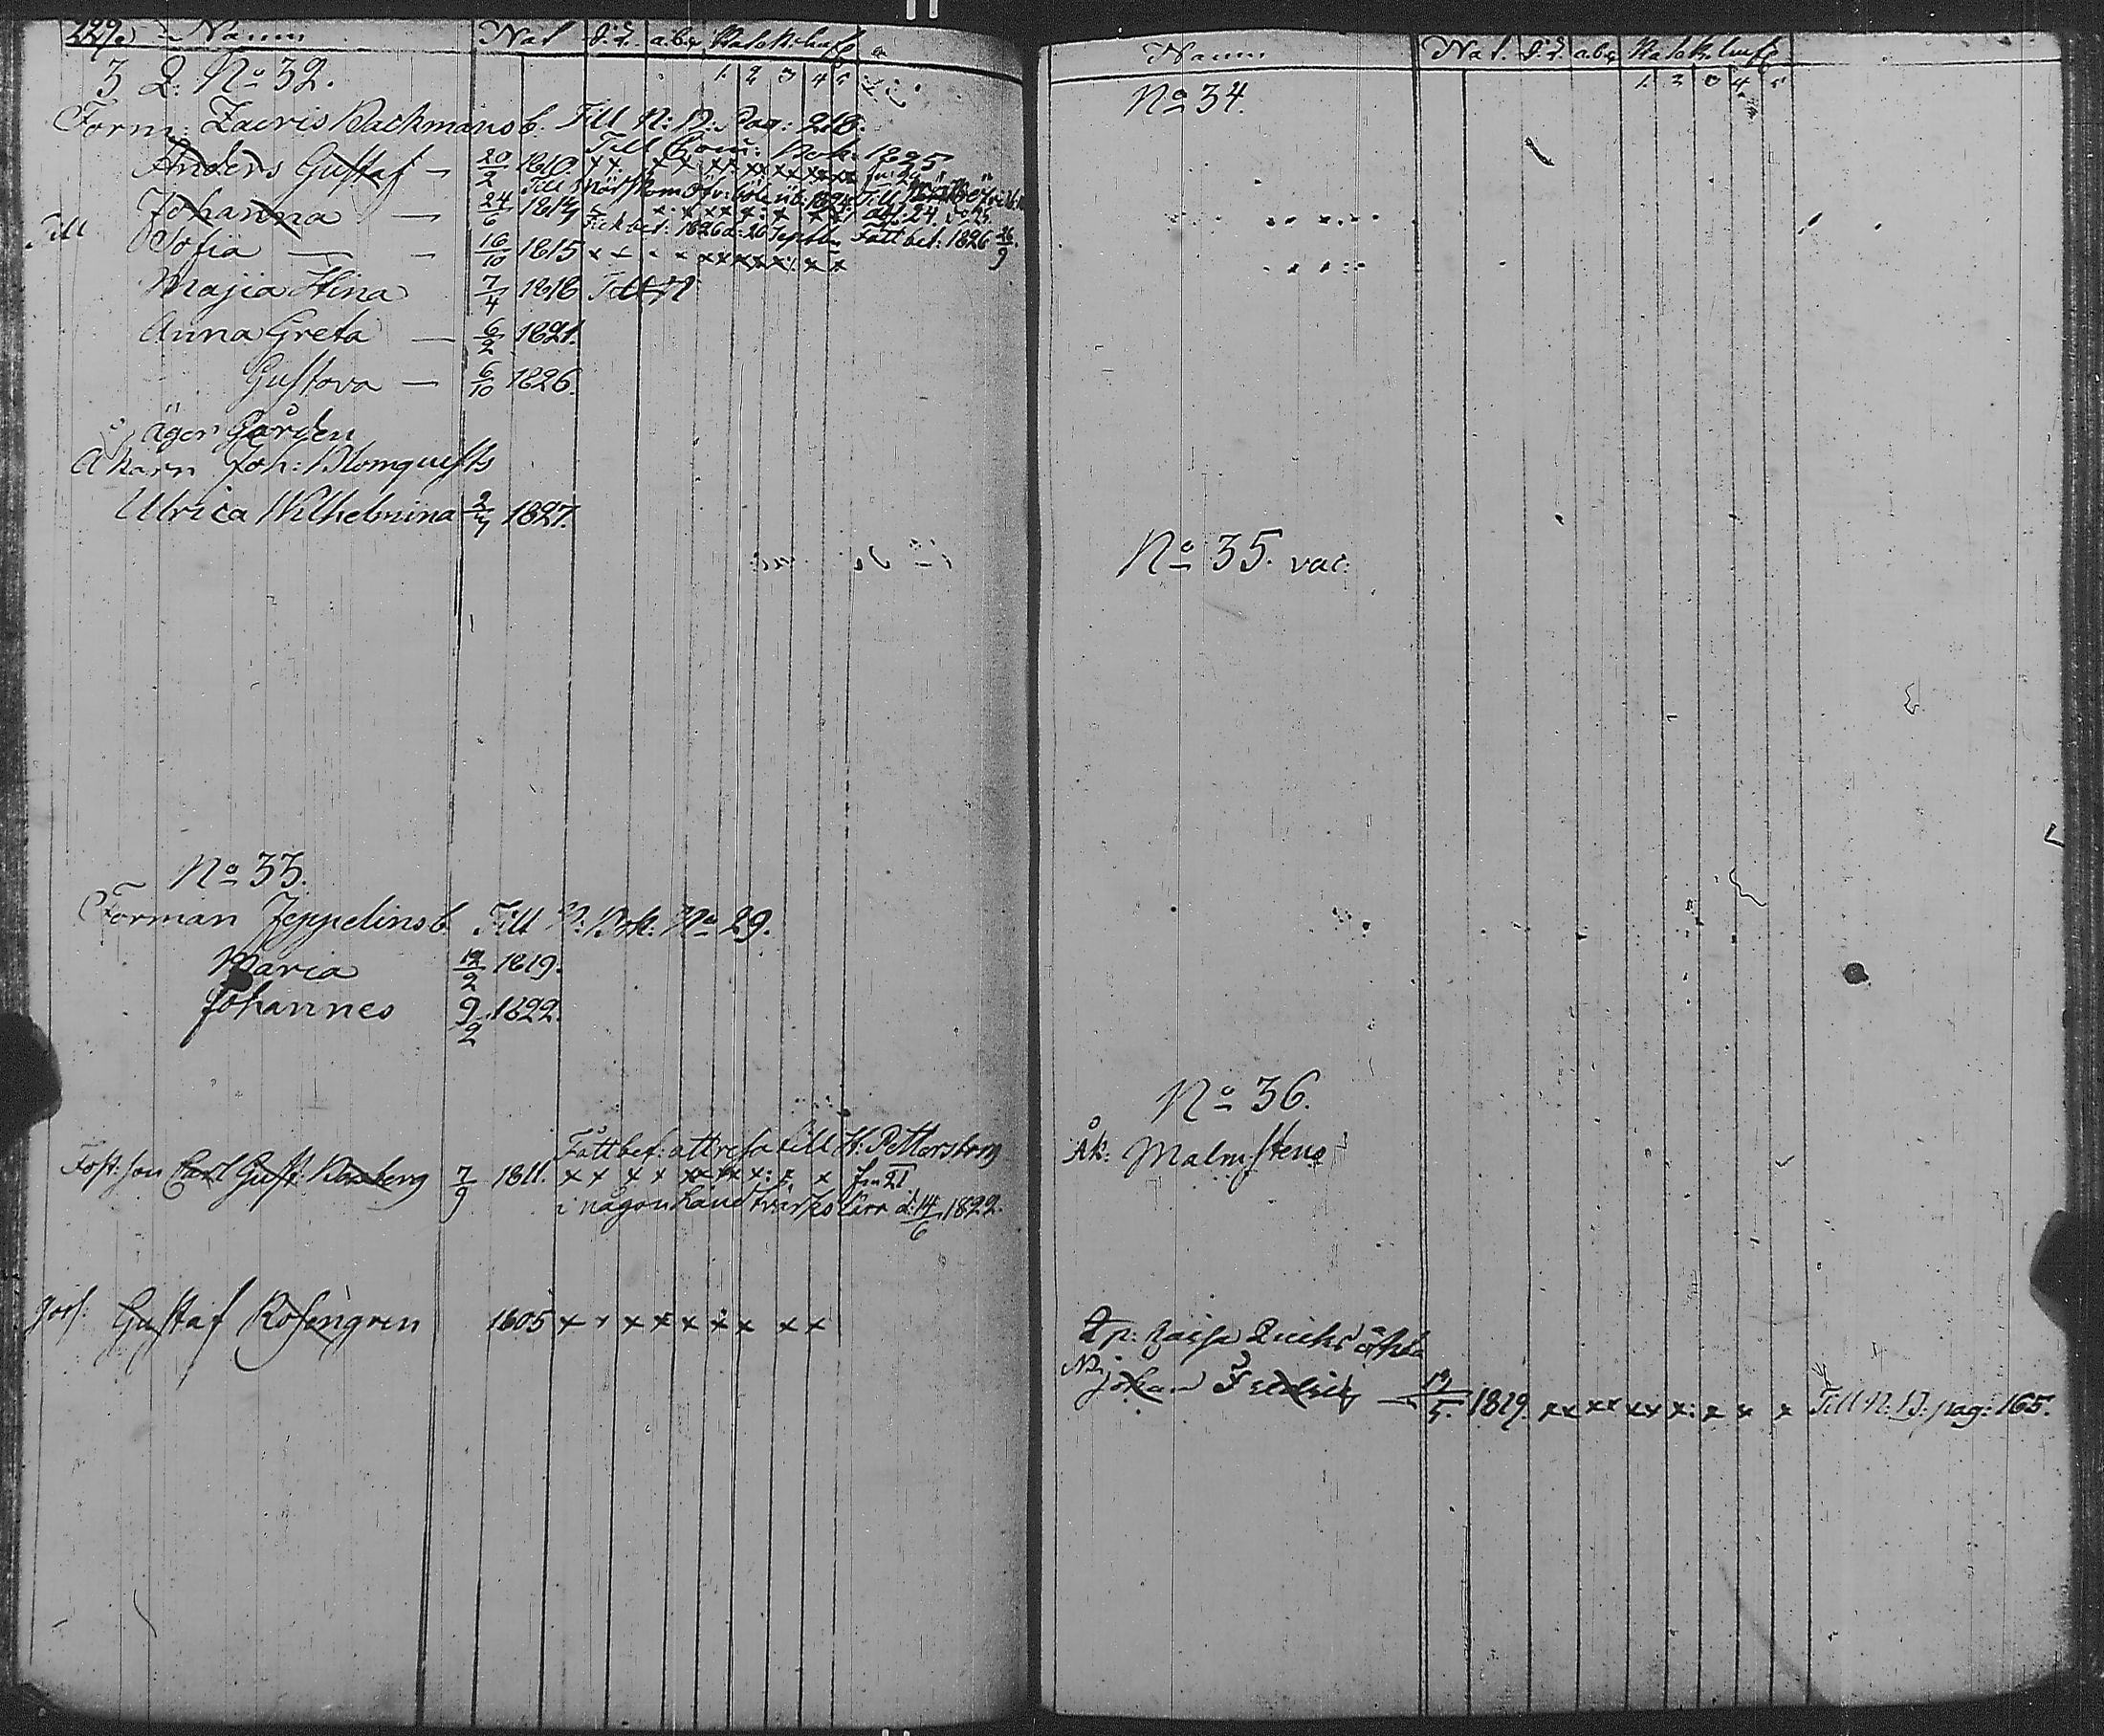 229. Namn Nat. abc
1. 2 3 4 5
3 Q: No 32.
Form: Zacris Backmans b. Till N: B: Pag: 218.
Till Com: Bok: 1825
Anders Gustaf — 20/2 1810. x x x x x x x x x x x
Johanna — 24/6 1814
Fick bet: 1826 d: 26 Septbr Fått bet: 1826 26/9
Till Sofia — 16/10 1815 x x x x x x x x x x x
Majia Stina 7/4 1818 Till N
Anna Greta — 6/2 1821.
Gustava — 6/10 1826.
äger Gården
Åkarn Joh: Blomquists
Ulrica Wilhelmina 2/7 1827.
No 33.
Forman Zeppelins b. Till N: Bok: No 29.
Maria 12/2 1819.
Johannes 9/2 1822.
Fått bet: att resa till St: Pettersborg
Fost: son Carl Gust: 7/9 1811. x x x x x x x x x x
i någon handtvärks lära d: 14/6 1822.
Goss: Gustaf Rosengren 1805 x x x x x x x x x
Namn Nat. abc
1. 2 3 4 5
No 34.
No 35. vac:
No 36.
Åk: Malmstens
Johan Fredric — 1819. x x x x x x x x x x Till N: B: pag: 165.